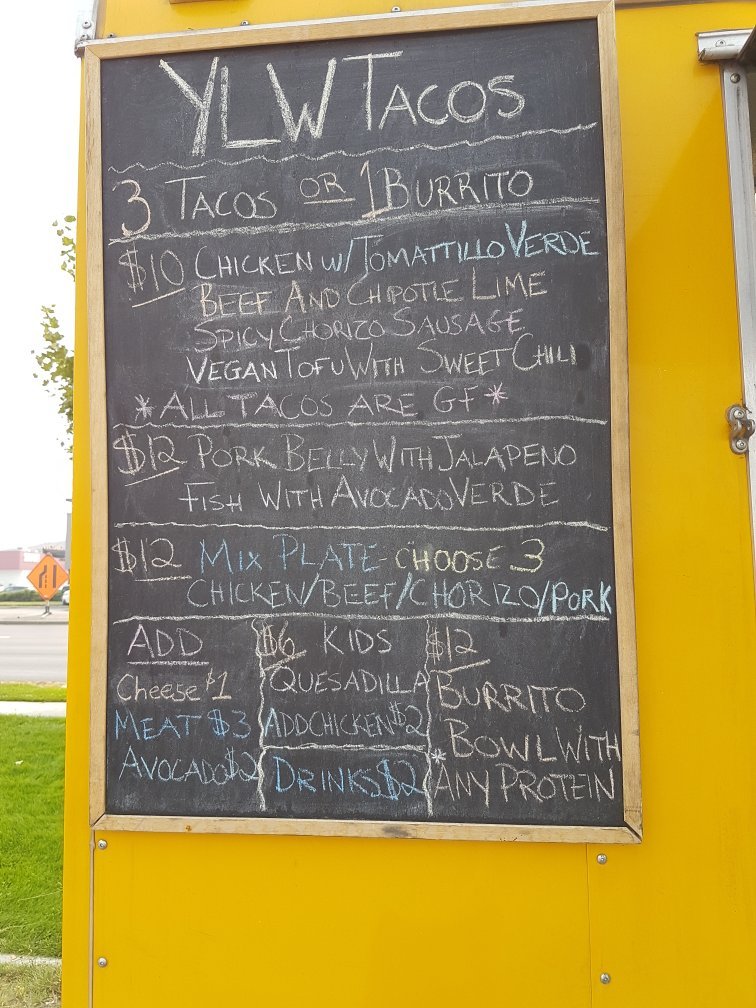 YLW TACOS
3 TACOS OR 1 BURRITO
$10 CHICKEN W/ TOMATTILLO VERDE
BEEF AND CHIPOTLE LIME
SPICY CHORIZO SAUSAGE
VEGAN TOFU WITH SWEET CHILI
*ALL TACOS ARE GF*
$12 PORK BELLY WITH JALAPENO
FISH WITH AVOCADO VERDE
$12 MIX PLATE CHOOSE 3
CHICKEN/BEEF/CHORIZO/PORK
ADD
Cheese $1
MEAT $3
AVOCADO $2
$6 KIDS
QUESADILLA
ADD CHICKEN $2
DRINKS $2
$12
BURRITO
BOWL WITH
*ANY PROTEIN